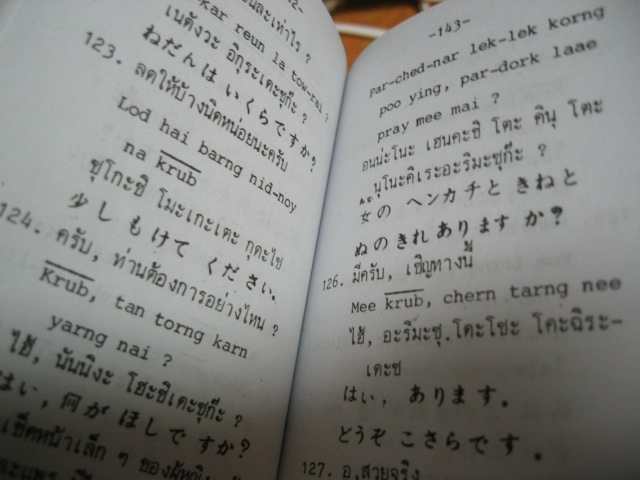 -kar reun la tow-rai ?
เนดังวะ อิกุระเดะซุก๊ะ ?
ねだんは いくらですか?
123. ลดให้บ้างนิดหน่อยนะครับ
Lod hai barng nid-noy
na krub
ซุโกะชิ โมะเกะเตะ กุดะไซ
少し もけて ください。
124. ครับ, ท่านต้องการอย่างไหน ?
Krub, tan torng karn
yarng nai ?
ไฮ้, นันนิงะ โฮะชิเดะซุก๊ะ ?
はい, 何が ほしですか?
เช็ดหน้าเล็ก ๆ ของผู้หญิง
-143-
par-ched-nar lek-lek korng
poo ying, par-dork laae
pray mee mai ?
อนน่ะโนะ เฮนคะชิ โตะ คินุ โตะ
นุโนะคิเระอะริมะซุก๊ะ ?
女の ヘンカチと きねと
ぬのきれありますか?
126. มีครับ, เชิญทางนี้
Mee krub, chern tarng nee
ไฮ้, อะริมะซุ.โดะโซะ โคะฉิระ-
เดะซ
はい, あります。
どうぞ こさらです。
127. อ,สวยจริง